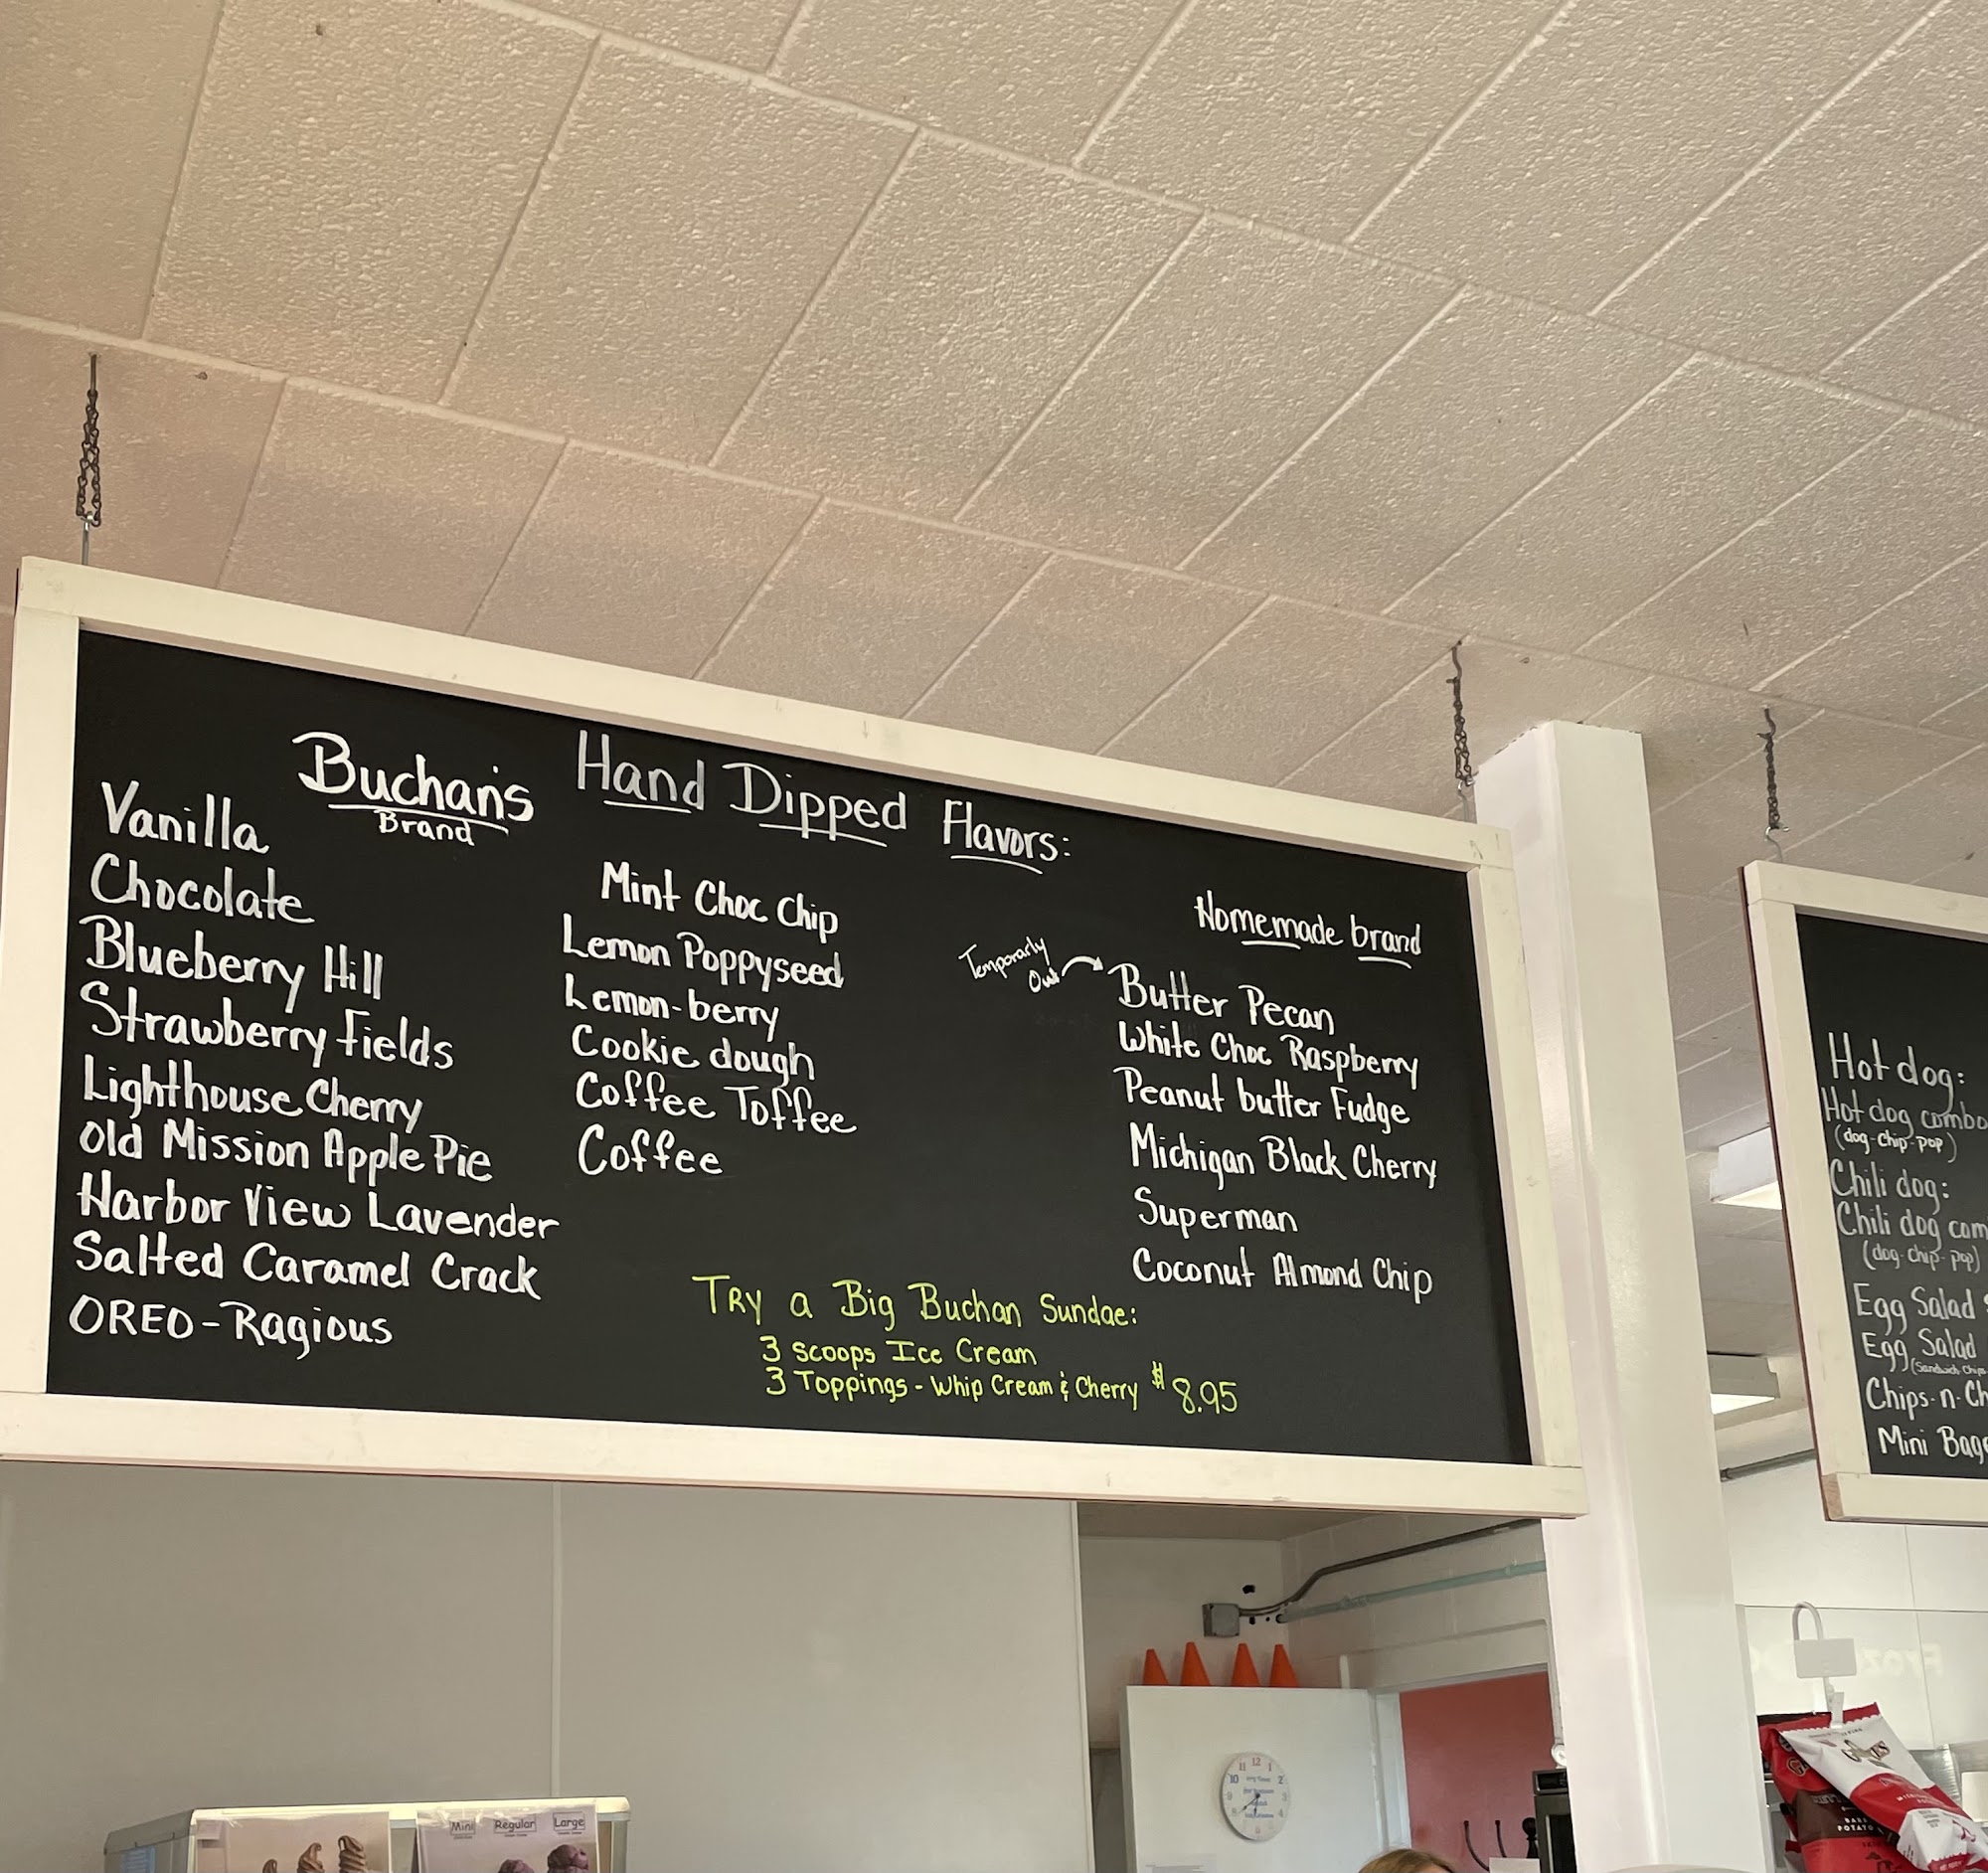 Buchan's Hand Dipped Flavors:
Brand
Vanilla
Chocolate
Blueberry Hill
Strawberry Fields
Lighthouse Cherry
Old Mission Apple Pie
Harbor View Lavender
Salted Caramel Crack
OREO-Ragious
Mint Choc Chip
Lemon Poppyseed
Lemon-berry
Cookie dough
Coffee Toffee
Coffee
Homemade brand
Temporarly
Out
Butter Pecan
White Choc Raspberry
Peanut butter Fudge
Michigan Black Cherry
Superman
Coconut Almond Chip
Try a Big Buchan Sundae:
3 scoops Ice Cream
3 Toppings - Whip Cream & Cherry $8.95
Hot dog:
Hot dog combo
(dog-chip-pop)
Chili dog:
Chili dog com
(dog-chip-pop)
Egg Salad
Egg Salad
(Sandwich Chips
Chips-n-Ch
Mini Bag
Mini Regular Large